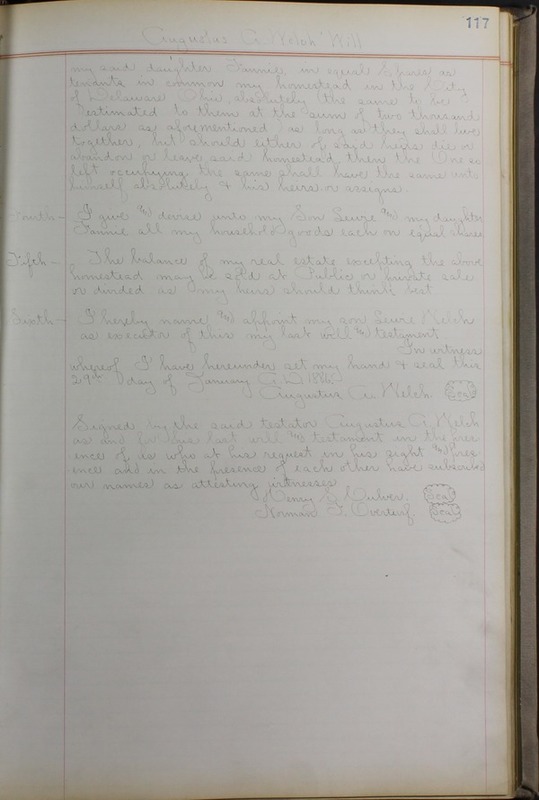 117
"Augustus A. Welch" Will
my said daughter Fannie in equal shares as
tenants in common my homestead in the City
of Delaware Ohio, absolutely the same to be
estimated to them at the sum of two thousand
dollars as aforementioned as long as they shall live
together, but should either of said heirs die or
abandon or leave said homestead then the One so
left occupying the same shall have the same unto
himself absolutely & his heirs or assigns.
Fourth - I give and devise unto my Son and my daughter
Fannie all my household goods each an equal share
Fifth - The balance of my real estate excepting the above
homestead may be sold at Public or private sale
or divided as my heirs should think best
Sixth - I hereby name and appoint my son Welch
as executor of this my last will and testament
In witness
whereof I have hereunder set my hand & seal this
29th day of January A.D. 1886.
Augustus A. Welch. Seal
Signed by the said testator Augustus A. Welch
as and for his last will and testament in the pres
ence of us who at his request in his sight and pres
ence and in the presence of each other have subscribed
our names as attesting witnesses
Henry S. Culver. Seal
Norman F. Overturf. Seal